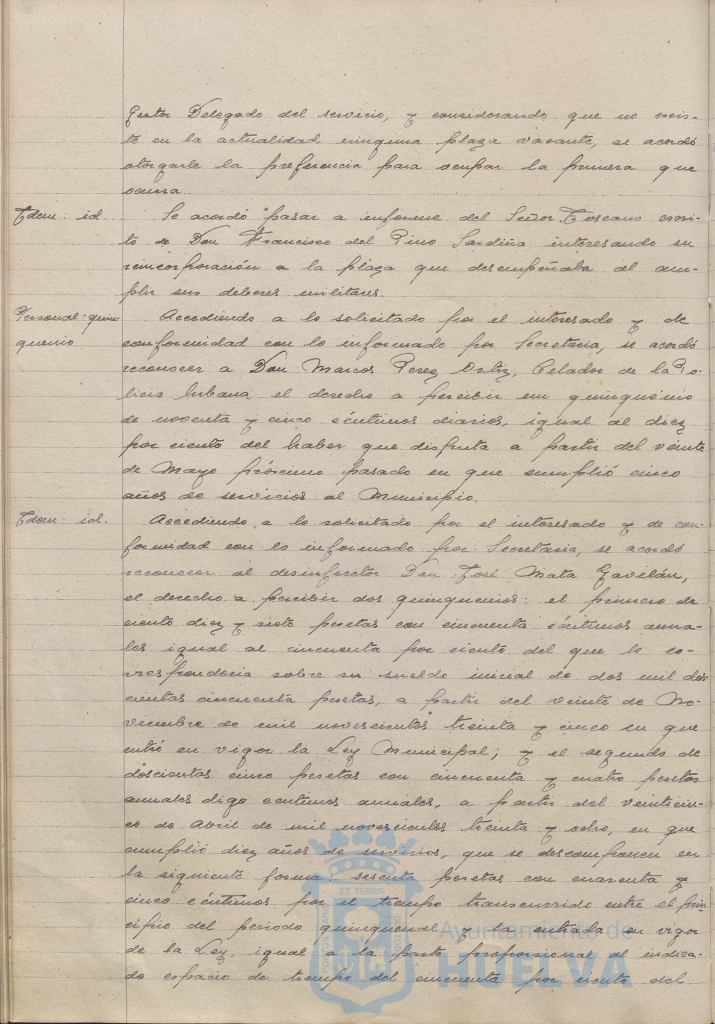 Gestor Delegado del servicio, y considerando que no exis-
te en la actualidad ninguna plaza vacante, se acordó
otorgarle la preferencia para ocupar la primera que
ocurra.
Idem: id.
Se acordó pasar a informe del Señor Toscano escri-
to de Don Francisco del Pino Sardiña interesando su
reincorporación a la plaza que desempeñaba al cum-
plir sus deberes militares.
Personal: quin-
quenio
Accediendo a lo solicitado por el interesado y de
conformidad con lo informado por Secretaria, se acordó
reconocer a Don Marcos Perez Ortiz, Celador de la Po-
licia Urbana el derecho a percibir un quinquenio
de noventa y cinco céntimos diarios, igual al diez
por ciento del haber que disfruta a partir del veinte
de Mayo próximo pasado en que cumplió cinco
años de servicios al Municipio.
Idem: id.
Accediendo a lo solicitado por el interesado y de con-
formidad con lo informado por Secretaria, se acordó
reconocer al desinfector Don José Mata Gavilán,
el derecho a percibir dos quinquenios: el primero de
ciento diez y siete pesetas con cincuenta céntimos anua-
les igual al cincuenta por ciento del que le co-
rrespondería sobre su sueldo inicial de dos mil dos
cientas cincuenta pesetas, a partir del veinte de No-
viembre de mil novescientos treinta y cinco en que
entró en vigor la Ley Municipal; y el segundo de
doscientas cinco pesetas con cincuenta y cuatro pesetas
anuales digo céntimos anuales, a partir del veinticin-
co de Abril de mil novescientos treinta y ocho, en que
cumplió diez años de servicios, que se descomponen en
la siguiente forma: sesenta pesetas con cuarenta y
cinco céntimos por el tiempo transcurrido entre el prin-
cipio del periodo quinquenal y la entrada en vigor
de la Ley, igual a la parte proporcional al indica-
do espacio de tiempo del cincuenta por ciento del
Ayuntamiento de
HUELVA